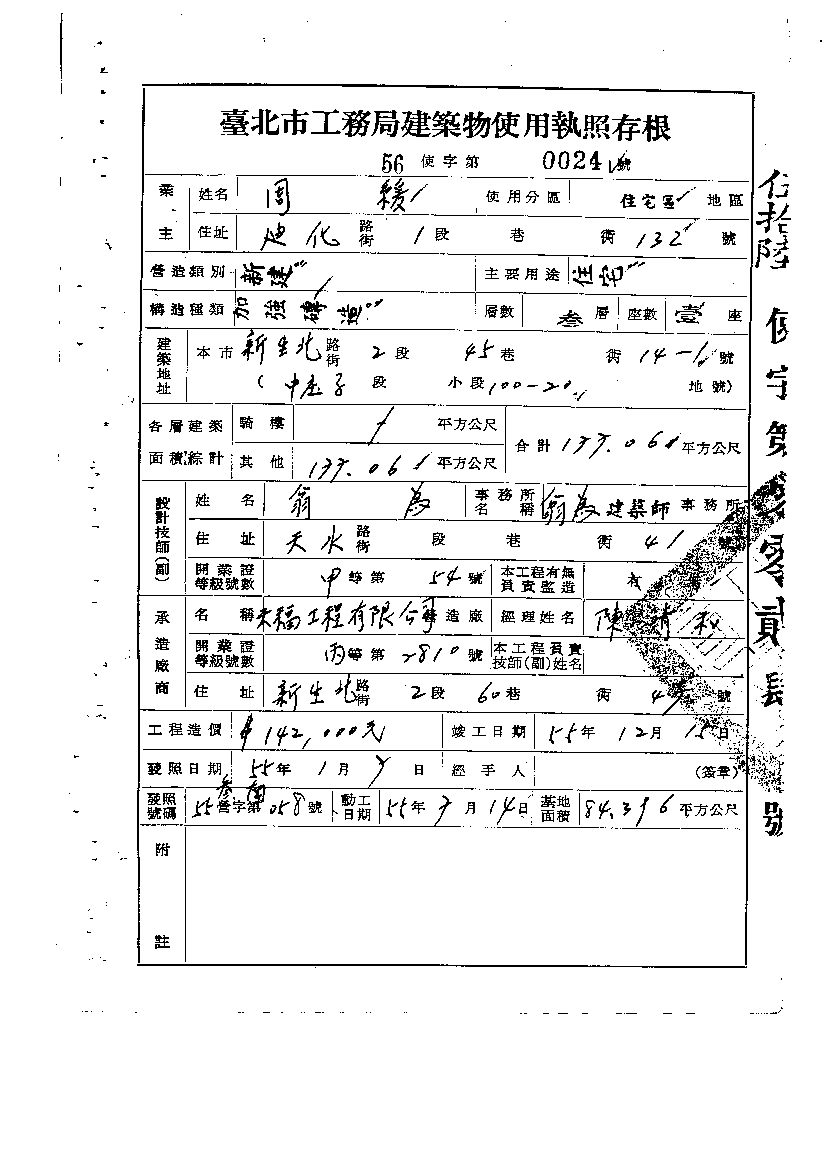 臺北市工務局建築物使用執照存根
56 使字第 0024 號
業主 姓名 周 緩 使用分區 住宅區 地區
住址 迪化 路街 1 段 巷 街 132 號
營造類別 新建 主要用途 住宅
構造種類 加強磚造 層數 叁 層 座數 壹 座
建築地址 本市 新生北 路街 2 段 45 巷 街 14-1 號
( 中庄子 段 小段 100-20 地號)
各層建築面積綜計 騎樓 平方公尺 合計 平方公尺
其他 平方公尺
設計技師(副) 姓名 翁 為 事務所名稱 翁為建築師 事務所
住址 天水 路街 段 巷 街 41 號
開業證等級號數 甲 等第 54 號 本工程有無負責監造 有
承造廠商 名稱 工程有限公司 營造廠 經理姓名 陳
開業證等級號數 丙 等第 2810 號 本工程負責技師(副)姓名
住址 新生北 路街 2 段 60 巷 街 號
工程造價 $142,000元 竣工日期 55 年 12 月 15 日
發照日期 年 1 月 日 經手人 (簽章)
發照號碼 55 營字第 058 號 動工日期 55 年 月 14 日 基地面積 84.396 平方公尺
附註
伍拾陸 使字第 零零貳 號